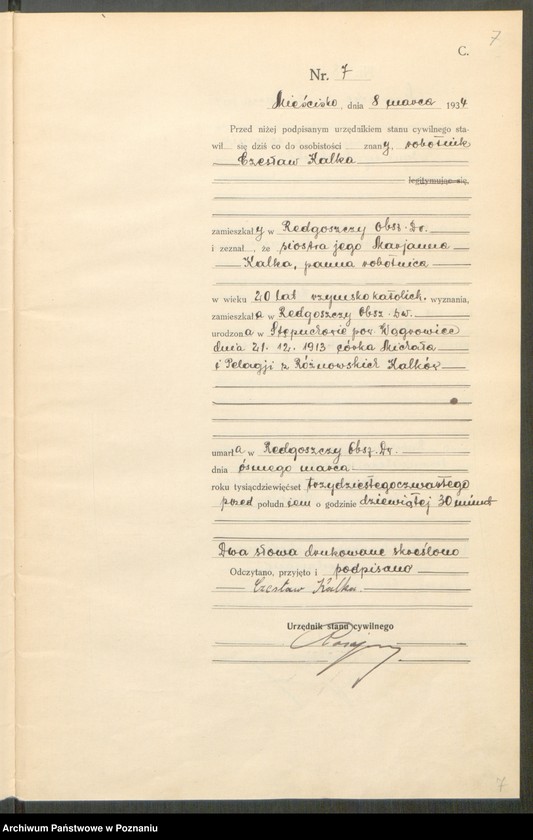 7
C.
Nr. 7
Mieścisko, dnia 8 marca 1934
Przed niżej podpisanym urzędnikiem stanu cywilnego sta-
wił się dziś co do osobistości znany, robotnik
Czesław Kalka
legitymując się,
zamieszkały w Redgoszczy Obsz. Dw.
i zeznał, że siostra jego Marjanna
Kalka, panna robotnica
w wieku 20 lat rzymskokatolick. wyznania,
zamieszkała w Redgoszczy Obsz. Dw.
urodzona w Stępuchowie pow. Wągrowiec
dnia 21. 12. 1913 córka Michała
i Pelagji z Różnowskich Kalków
umarła w Redgoszczy Obsz. Dw.
dnia ósmego marca
roku tysiącdziewięćset trzydziestegoczwartego
przed południem o godzinie dziewiątej 30 minut
Dwa słowa drukowane skreślono
Odczytano, przyjęto i podpisano
Czesław Kalka.
Urzędnik stanu cywilnego
7
Archiwum Państwowe w Poznaniu